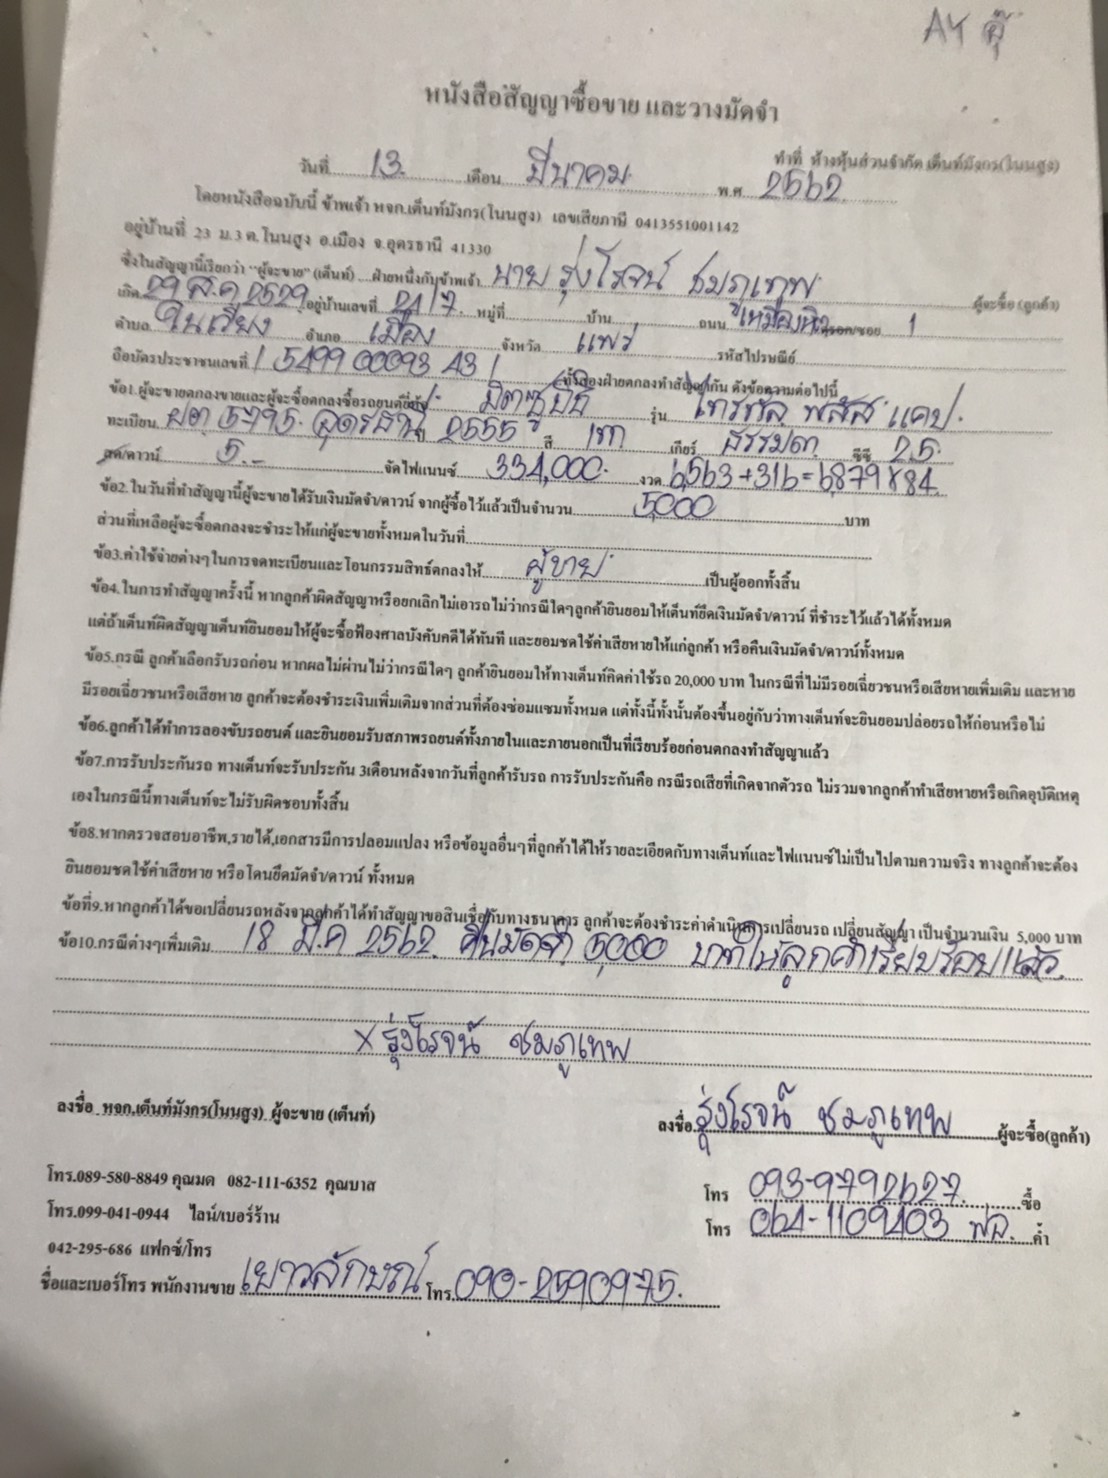 AY ตุ๊
หนังสือสัญญาซื้อขาย และวางมัดจำ
ทำที่ ห้างหุ้นส่วนจำกัด เต็นท์มังกร(โนนสูง)
วันที่ 13. เดือน มีนาคม พ.ศ. 2562
โดยหนังสือฉบับนี้ ข้าพเจ้า หจก.เต็นท์มังกร(โนนสูง) เลขเสียภาษี 0413551001142
อยู่บ้านที่ 23 ม.3 ต.โนนสูง อ.เมือง จ.อุดรธานี 41330
ซึ่งในสัญญานี้เรียกว่า "ผู้จะขาย" (เต็นท์) ฝ่ายหนึ่งกับข้าพเจ้า นาย รุ่งโรจน์ ชมภูเทพ ผู้จะซื้อ (ลูกค้า)
เกิด 29 ส.ค 2529 อยู่บ้านเลขที่ 24/7 หมู่ที่ บ้าน ถนน เหมืองหิต ตรอก/ซอย 1
ตำบล ในเวียง อำเภอ เมือง จังหวัด แพร่ รหัสไปรษณีย์
ถือบัตรประชาชนเลขที่ 1 5499 00093 43 1 ทั้งสองฝ่ายตกลงทำสัญญากัน ดังข้อความต่อไปนี้
ข้อ1.ผู้จะขายตกลงขายและผู้จะซื้อตกลงซื้อรถยนต์ยี่ห้อ มิตซูบิชิ รุ่น ไทรทัล พลัส แคป.
ทะเบียน ผต 5795 อุดรธานี 2555 สี เทา เกียร์ ธรรมดา ซีซี 2.5
สด/ดาวน์ 5.- จัดไฟแนนซ์ 334,000.- งวด 6,563+316=6,879x84.
ข้อ2.ในวันที่ทำสัญญานี้ผู้จะขายได้รับเงินมัดจำ/ดาวน์ จากผู้ซื้อไว้แล้วเป็นจำนวน 5,000 บาท
ส่วนที่เหลือผู้จะซื้อตกลงจะชำระให้แก่ผู้จะขายทั้งหมดในวันที่
ข้อ3.ค่าใช้จ่ายต่างๆในการจดทะเบียนและโอนกรรมสิทธ์ตกลงให้ ผู้ขาย เป็นผู้ออกทั้งสิ้น
ข้อ4.ในการทำสัญญาครั้งนี้ หากลูกค้าผิดสัญญาหรือยกเลิกไม่เอารถไม่ว่ากรณีใดๆลูกค้ายินยอมให้เต็นท์ยึดเงินมัดจำ/ดาวน์ ที่ชำระไว้แล้วได้ทั้งหมด
แต่ถ้าเต็นท์ผิดสัญญาเต็นท์ยินยอมให้ผู้จะซื้อฟ้องศาลบังคับคดีได้ทันที และยอมชดใช้ค่าเสียหายให้แก่ลูกค้า หรือคืนเงินมัดจำ/ดาวน์ทั้งหมด
ข้อ5.กรณี ลูกค้าเลือกรับรถก่อน หากผลไม่ผ่านไม่ว่ากรณีใดๆ ลูกค้ายินยอมให้ทางเต็นท์คิดค่าใช้รถ 20,000 บาท ในกรณีที่ไม่มีรอยเฉี่ยวชนหรือเสียหายเพิ่มเติม และหาย
มีรอยเฉี่ยวชนหรือเสียหาย ลูกค้าจะต้องชำระเงินเพิ่มเติมจากส่วนที่ต้องซ่อมแซมทั้งหมด แต่ทั้งนี้ทั้งนั้นต้องขึ้นอยู่กับว่าทางเต็นท์จะยินยอมปล่อยรถให้ก่อนหรือไม่
ข้อ6.ลูกค้าได้ทำการลองขับรถยนต์ และยินยอมรับสภาพรถยนต์ทั้งภายในและภายนอกเป็นที่เรียบร้อยก่อนตกลงทำสัญญาแล้ว
ข้อ7.การรับประกันรถ ทางเต็นท์จะรับประกัน 3เดือนหลังจากวันที่ลูกค้ารับรถ การรับประกันคือ กรณีรถเสียที่เกิดจากตัวรถ ไม่รวมจากลูกค้าทำเสียหายหรือเกิดอุบัติเหตุ
เองในกรณีนี้ทางเต็นท์จะไม่รับผิดชอบทั้งสิ้น
ข้อ8.หากตรวจสอบอาชีพ,รายได้,เอกสารมีการปลอมแปลง หรือข้อมูลอื่นๆที่ลูกค้าได้ให้รายละเอียดกับทางเต็นท์และไฟแนนซ์ไม่เป็นไปตามความจริง ทางลูกค้าจะต้อง
ยินยอมชดใช้ค่าเสียหาย หรือโดนยึดมัดจำ/ดาวน์ ทั้งหมด
ข้อที่9.หากลูกค้าได้ขอเปลี่ยนรถหลังจากลูกค้าได้ทำสัญญาขอสินเชื่อกับทางธนาคาร ลูกค้าจะต้องชำระค่าดำเนินการเปลี่ยนรถ เปลี่ยนสัญญา เป็นจำนวนเงิน 5,000 บาท
ข้อ10.กรณีต่างๆเพิ่มเติม 18 มี.ค 2562. คืนมัดจำ 5,000 บาทให้ลูกค้าเรียบร้อยแล้ว.
x รุ่งโรจน์ ชมภูเทพ
ลงชื่อ หจก.เต็นท์มังกร(โนนสูง) ผู้จะขาย (เต็นท์)
ลงชื่อ รุ่งโรจน์ ชมภูเทพ ผู้จะซื้อ(ลูกค้า)
โทร.089-580-8849 คุณมด 082-111-6352 คุณบาส
โทร 093-9792627. ซื้อ
โทร.099-041-0944 ไลน์/เบอร์ร้าน
โทร 064-1109403 ค้ำ
042-295-686 แฟกซ์/โทร
ชื่อและเบอร์โทร พนักงานขาย เยาวลักษณ์ โทร. 090-2590975.